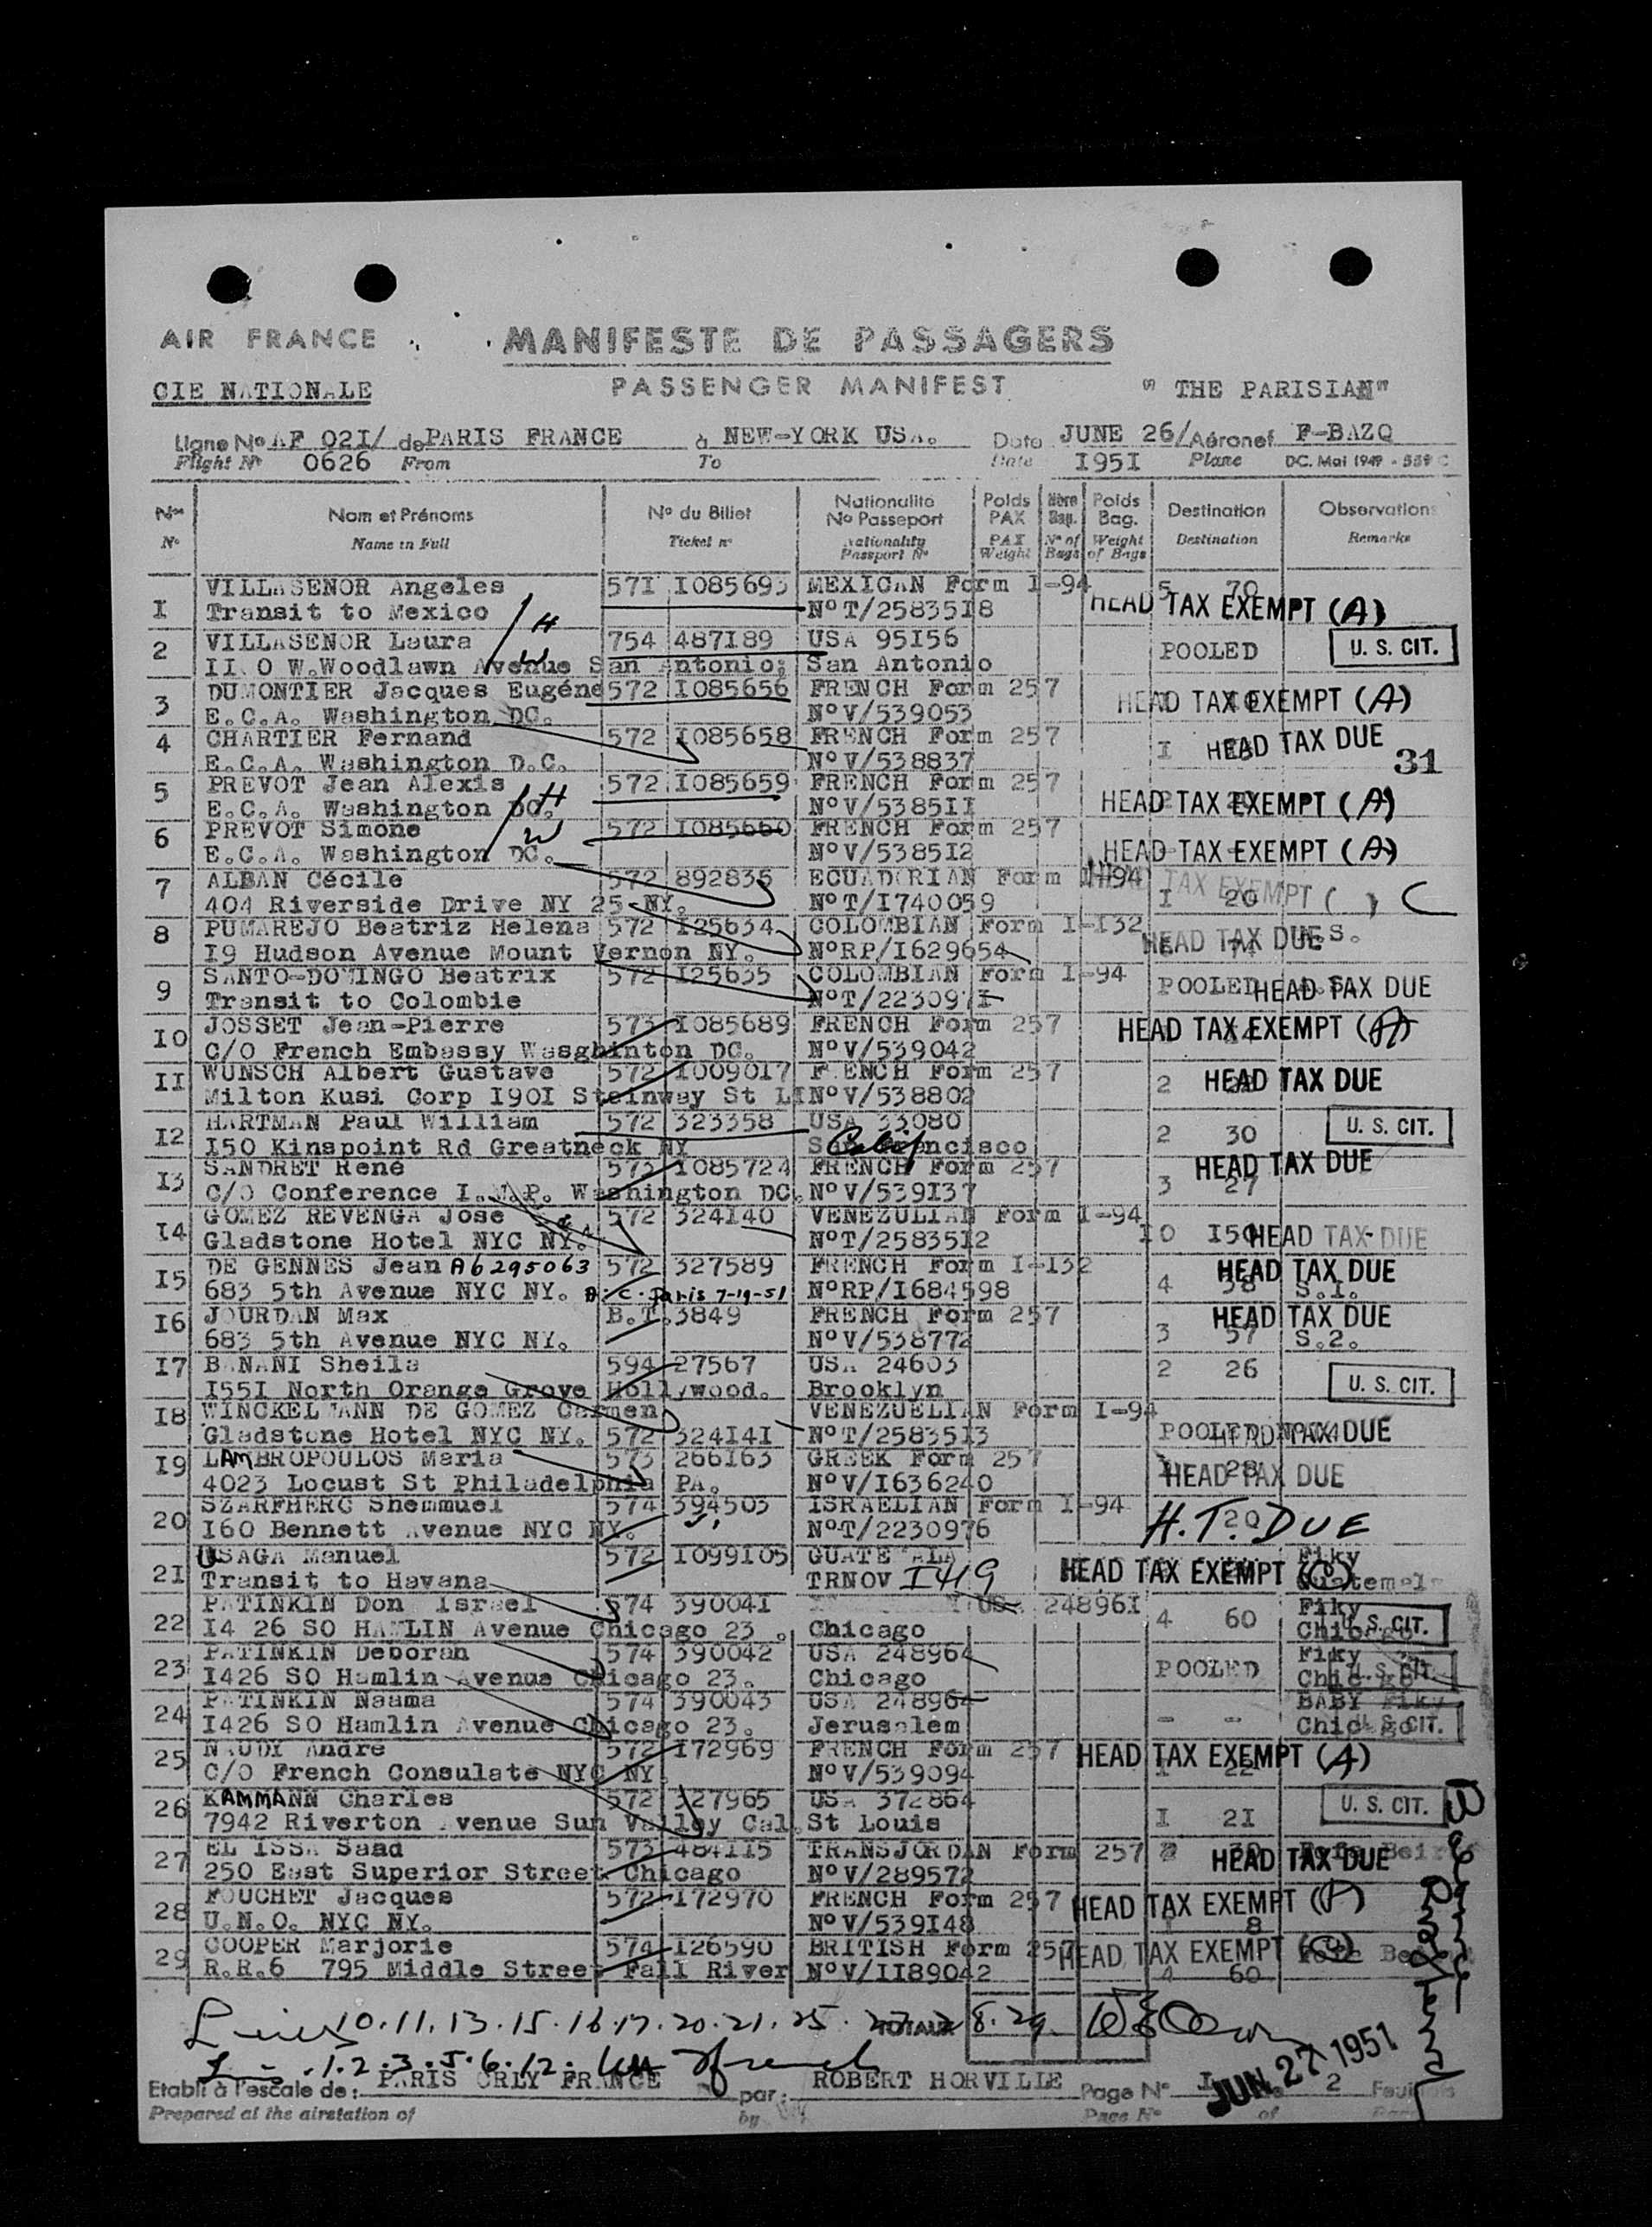 AIR FRANCE MANIFESTE DE PASSAGERS
CIE NATIONALE PASSENGER MANIFEST " THE PARISIAN"
Ligne No AF 02I/ de PARIS FRANCE à NEW-YORK USA. Date JUNE 26/ Aéronef F-BAZQ
Flight No 0626 From To Date I95I Plane DC. Mai 1949 - 559 C
Nos Nom et Prénoms No du Billet Nationalité No Passeport Poids PAX Nbre Bag. Poids Bag. Destination Observations
No Name in Full Ticket no Nationality Passport No PAX Weight No of Bags Weight of Bags Destination Remarks
I VILLASENOR Angeles 57I I085693 MEXICAN Form I-94 5 70
Transit to Mexico NºT/25835I8 HEAD TAX EXEMPT (A)
H
2 VILLASENOR Laura 754 487I89 USA 95I56 POOLED U. S. CIT.
II 0 W.Woodlawn Avenue San Antonio; San Antonio
W
3 DUMONTIER Jacques Eugéne 572 I085656 FRENCH Form 257 HEAD TAX EXEMPT (A)
E.C.A. Washington DC. NºV/539053
4 CHARTIER Fernand 572 I085658 FRENCH Form 257 I HEAD TAX DUE
E.C.A. Washington D.C. NºV/538837 31
5 PREVOT Jean Alexis 572 I085659 FRENCH Form 257
E.C.A. Washington DC. H NºV/5385II HEAD TAX EXEMPT (A)
6 PREVOT Simone W 572 I085660 FRENCH Form 257
E.C.A. Washington DC. NºV/5385I2 HEAD TAX EXEMPT (A)
7 ALBAN Cécile 572 892835 ECUADORIAN Form I-94 HEAD TAX EXEMPT ( ) C
404 Riverside Drive NY 25 NY. NºT/I740059 I 20
8 PUMAREJO Beatriz Helena 572 I25634 COLOMBIAN Form I-I32 HEAD TAX DUE S.
I9 Hudson Avenue Mount Vernon NY. NºRP/I629654
9 SANTO-DOMINGO Beatrix 572 I25635 COLOMBIAN Form I-94 POOLED HEAD TAX DUE
Transit to Colombie NºT/223097I
I0 JOSSET Jean-Pierre 573 I085689 FRENCH Form 257 HEAD TAX EXEMPT (A)
C/O French Embassy Wasghinton DC. NºV/539042
II WUNSCH Albert Gustave 572 I009017 FRENCH Form 257 2 HEAD TAX DUE
Milton Kusi Corp I90I Steinway St LI NºV/538802
I2 HARTMAN Paul William 572 323358 USA 33080 2 30 U. S. CIT.
I50 Kinspoint Rd Greatneck NY San Francisco Calif
I3 SANDRET René 573 I085724 FRENCH Form 257 HEAD TAX DUE
C/O Conference I.M.P. Washington DC. NºV/539I37 3 27
I4 GOMEZ REVENGA Jose 572 324I40 VENEZULIAN Form I-94
Gladstone Hotel NYC NY. NºT/25835I2 I0 I50 HEAD TAX DUE
I5 DE GENNES Jean A6295063 572 327589 FRENCH Form I-I32 HEAD TAX DUE
683 5th Avenue NYC NY. Paris 7-19-51 NºRP/I684598 4 38 S.I.
I6 JOURDAN Max B.T.3849 FRENCH Form 257 HEAD TAX DUE
683 5th Avenue NYC NY. NºV/538772 3 57 S.2.
I7 BANANI Sheila 594 27567 USA 24603 2 26 U. S. CIT.
I55I North Orange Grove Hollywood. Brooklyn
I8 WINCKELMANN DE GOMEZ Carmen VENEZUELIAN Form I-94
Gladstone Hotel NYC NY. 572 324I4I NºT/25835I3 POOLED HEAD TAX DUE
I9 LAMBROPOULOS Maria 573 266I63 GREEK Form 257 28 HEAD TAX DUE
4023 Locust St Philadelphia PA. NºV/I636240
20 SZARFHERC Shemmuel 574 394503 ISRAELIAN Form I-94 20 H.T. DUE
I60 Bennett Avenue NYC NY. NºT/2230976
2I USAGA Manuel 572 I099I05 GUATEMALA HEAD TAX EXEMPT (C) Fiky
Transit to Havana TRNOV I419 Guatemala
22 PATINKIN Don Israel 574 39004I USA 24896I 4 60 Fiky
I4 26 SO HAMLIN Avenue Chicago 23 . Chicago Chicago U. S. CIT.
23 PATINKIN Deborah 574 390042 USA 248964 POOLED Fiky
I426 SO Hamlin Avenue Chicago 23. Chicago Chicago U. S. CIT.
24 PATINKIN Naama 574 390043 USA 248964 - - BABY Fiky
I426 SO Hamlin Avenue Chicago 23. Jerusalem Chicago U. S. CIT.
25 NAUDY Andre 572 I72969 FRENCH Form 257 HEAD TAX EXEMPT (A)
C/O French Consulate NYC NY. NºV/539094 I 22
26 KAMMANN Charles 572 327965 USA 372864 U. S. CIT.
7942 Riverton Avenue Sun Valley Cal. St Louis I 2I
27 EL ISSA Saad 573 484II5 TRANSJORDAN Form 257 HEAD TAX DUE
250 East Superior Street Chicago NºV/289572
28 FOUCHET Jacques 572 I72970 FRENCH Form 257 HEAD TAX EXEMPT (A)
U.N.O. NYC NY. NºV/539I48 8
29 COOPER Marjorie 574 I26590 BRITISH Form 257 HEAD TAX EXEMPT (C)
R.R.6 795 Middle Street Fall River NºV/II89042 4 60
Lines 10.11.13.15.16.17.20.21.25.27 TOTAUX 28.29
1.2.3.5.6.12.
JUN 27 1951
Etabli à l'escale de: PARIS ORLY FRANCE par: ROBERT HORVILLE Page No I 2 Feuillets
Prepared at the airstation of by Page No of